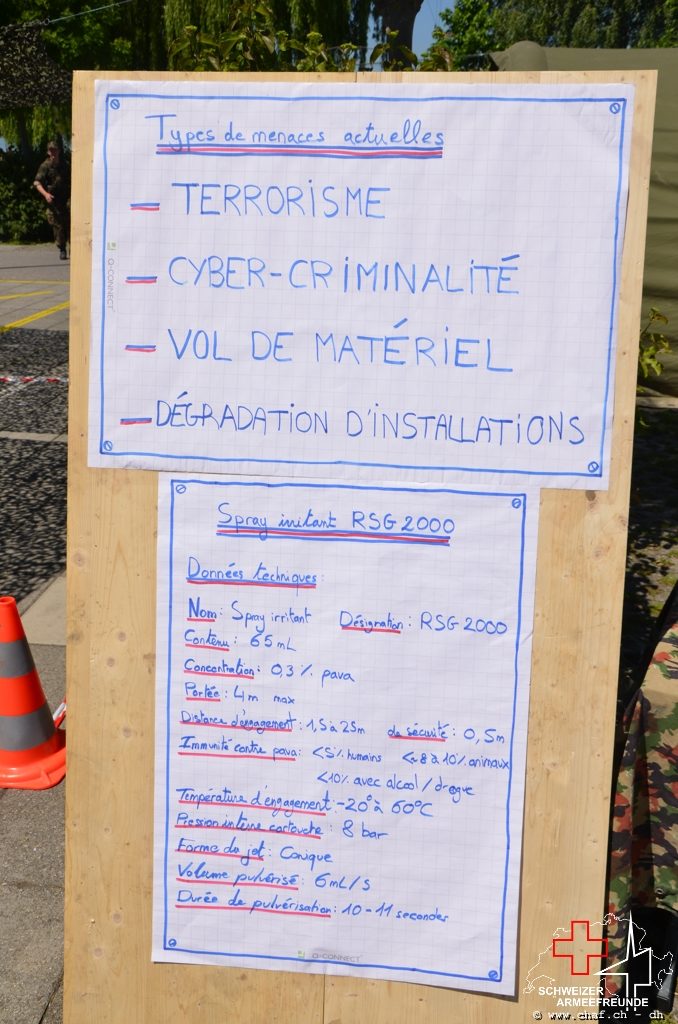 Types de menaces actuelles
– TERRORISME
– CYBER-CRIMINALITÉ
– VOL DE MATÉRIEL
– DÉGRADATION D'INSTALLATIONS
Q-CONNECT
Spray initant RSG 2000
Données techniques :
Nom : Spray irritant Désignation : RSG 2000
Contenu : 65 mL
Concentration : 0,3 % pava
Portée : 4 m max
Distance d'engagement : 1,5 à 25m de sécurité : 0,5m
Immunité contre pava : <5% humains <~8 à 10% animaux
<10% avec alcool / drogue
Température d'engagement : -20° à 60°C
Pression interne cartouche : 8 bar
Forme du jet : Conique
Volume pulvérisé : 6 mL/s
Durée de pulvérisation : 10 - 11 secondes
Q-CONNECT
SCHWEIZER
ARMEEFREUNDE
© www.chaf.ch - dh